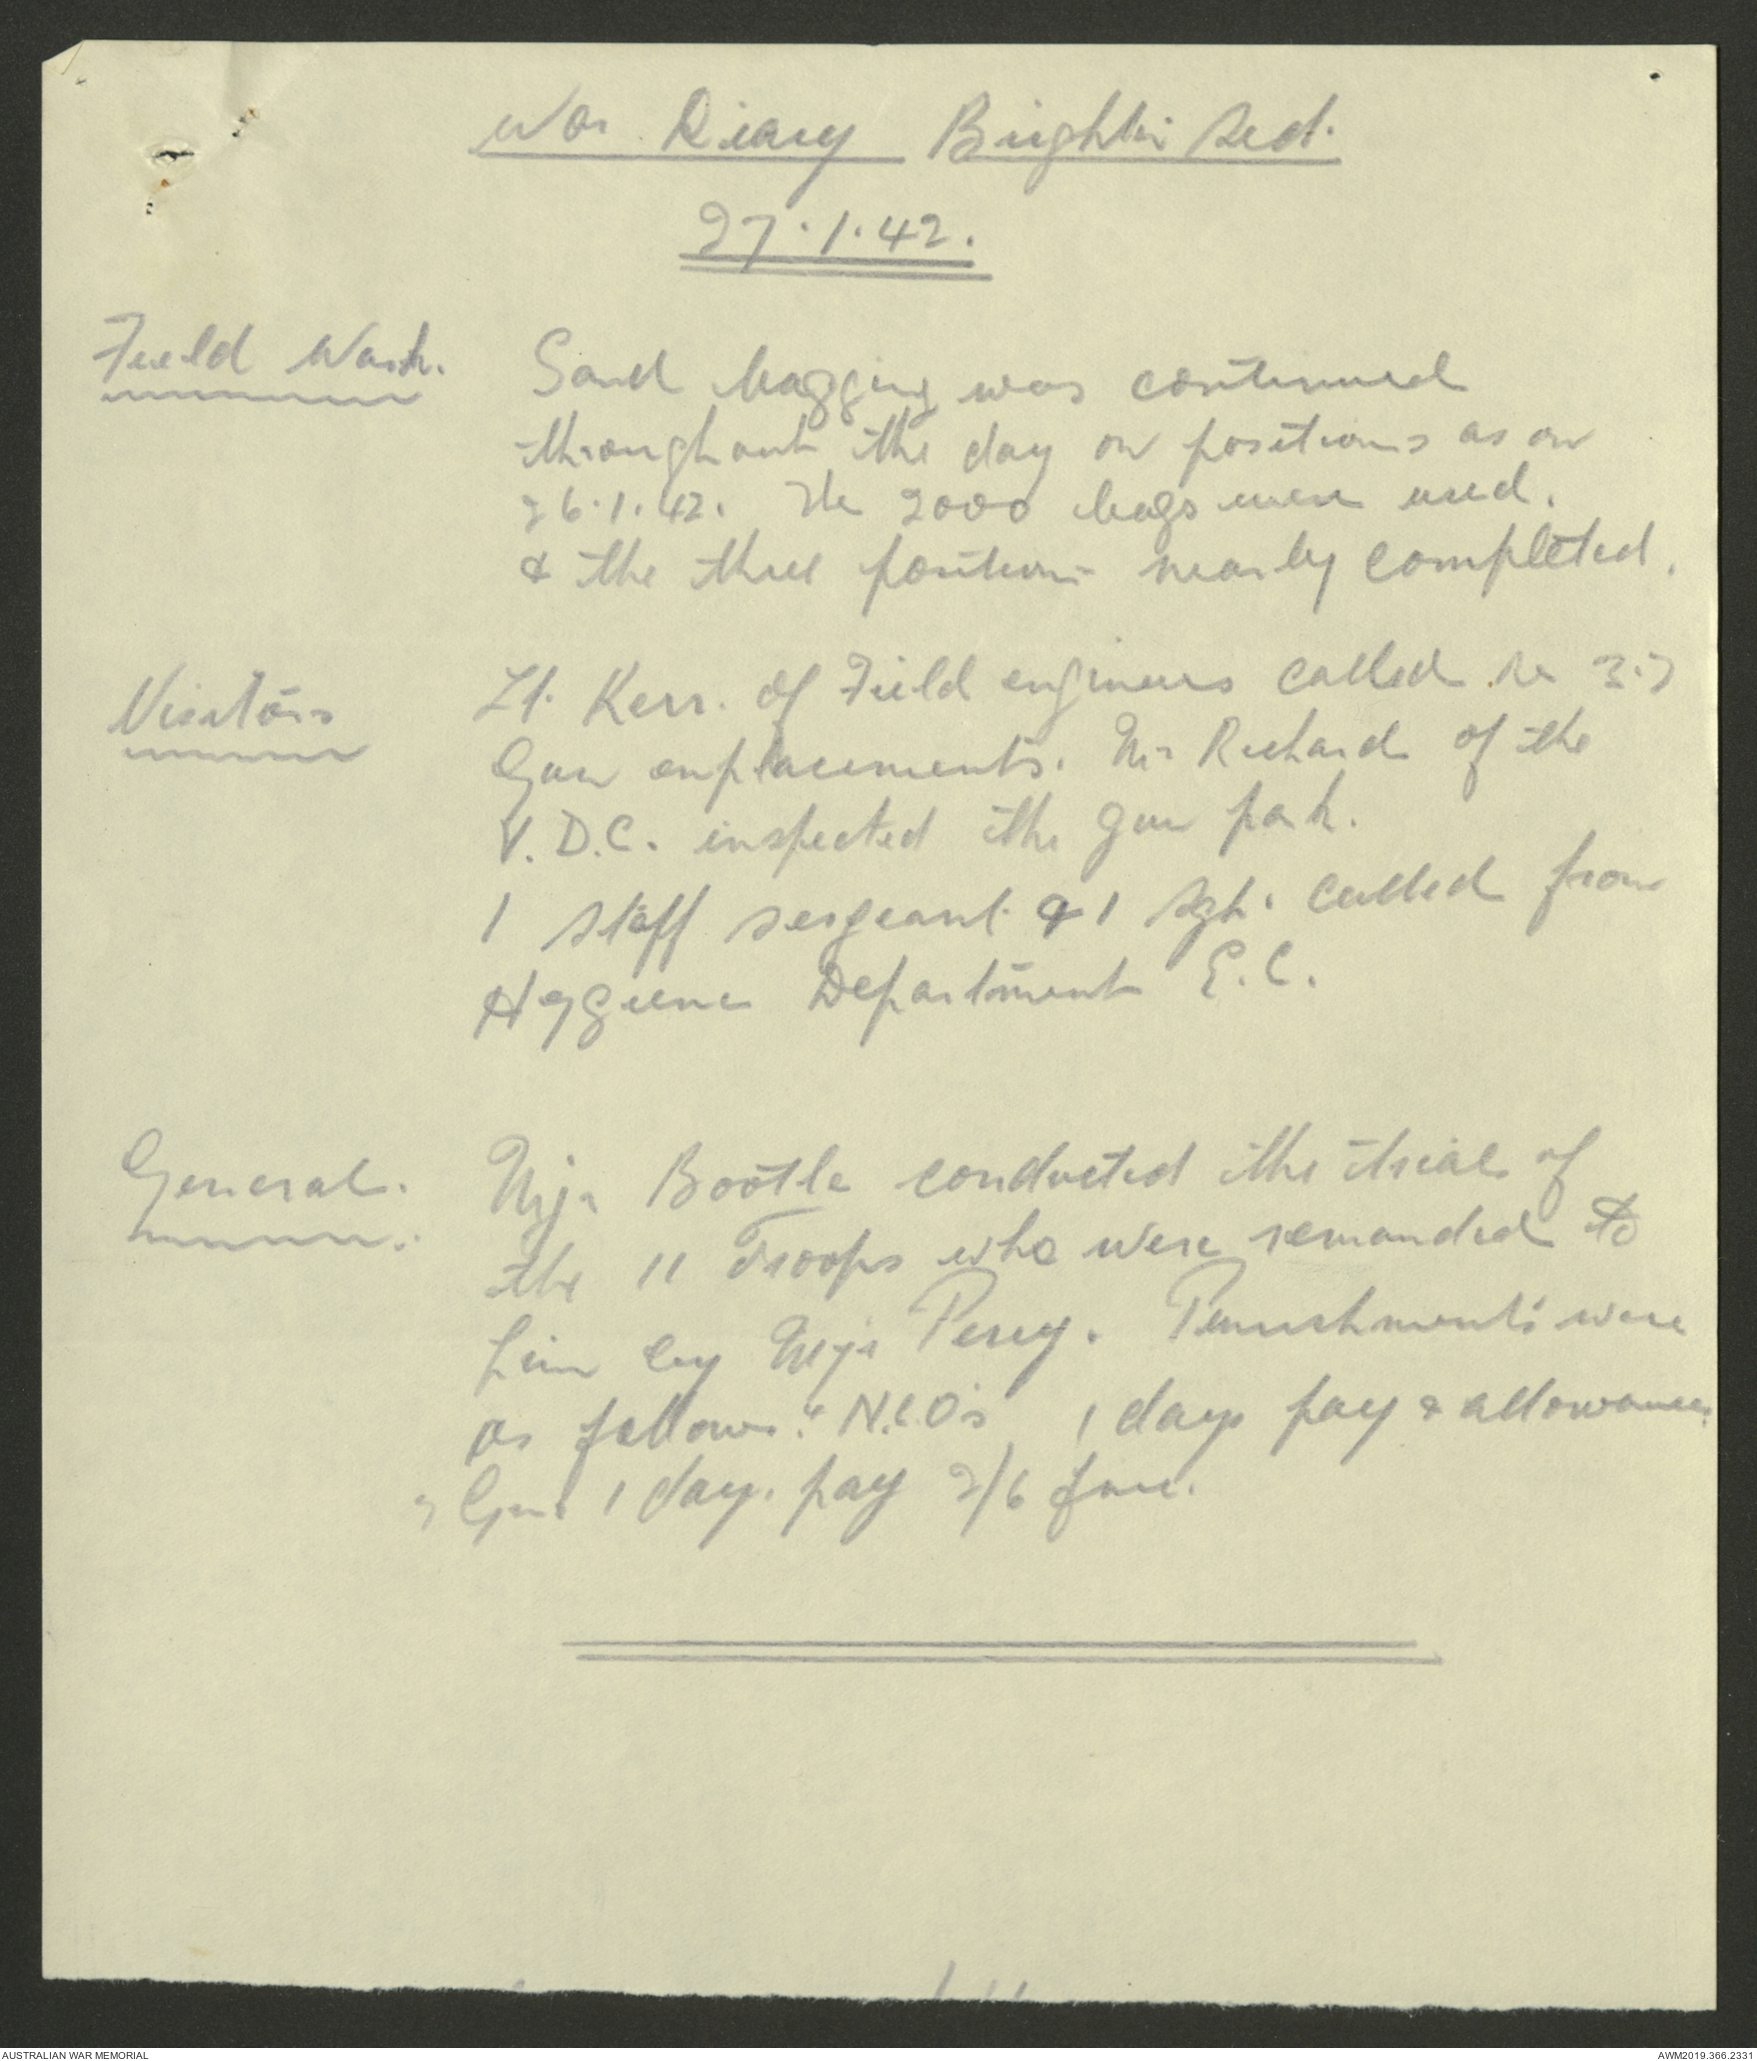 War Diary Brighton Sect.
27.1.42.
Field Work. Sand bagging was continued
throughout the day on positions as on
26.1.42. The 2000 bags were used.
& the three positions nearly completed.
Visitors Lt. Kerr. of Field engineers called re 3.7
Gun enplacements. Mr Richard of the
V.D.C. inspected the gun park.
1 staff sergeant & 1 Sgt. called from
Hygiene Department E.C.
General. Mjr Bootle conducted the trial of
the 11 Troops who were remanded to
him by Mjr Percy. Punishments were
as follows:" N.C.O's 1 days pay & allowances
Gnr 1 day. pay 2/6 fine.
AUSTRALIAN WAR MEMORIAL
AWM2019.366.2331